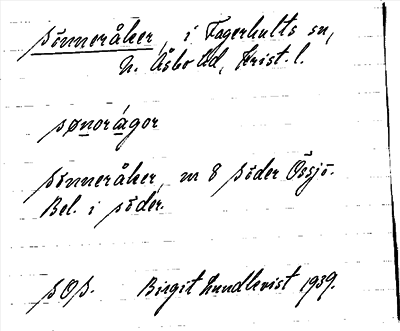 Sönneråker, i Fagerhults sn,
N. Åsbo hd, Krist. l.
sønorágor
Sönneråker, nr 8 Söder Össjö.
Bel. i söder.
SOS. Birgit Lundkvist 1939.